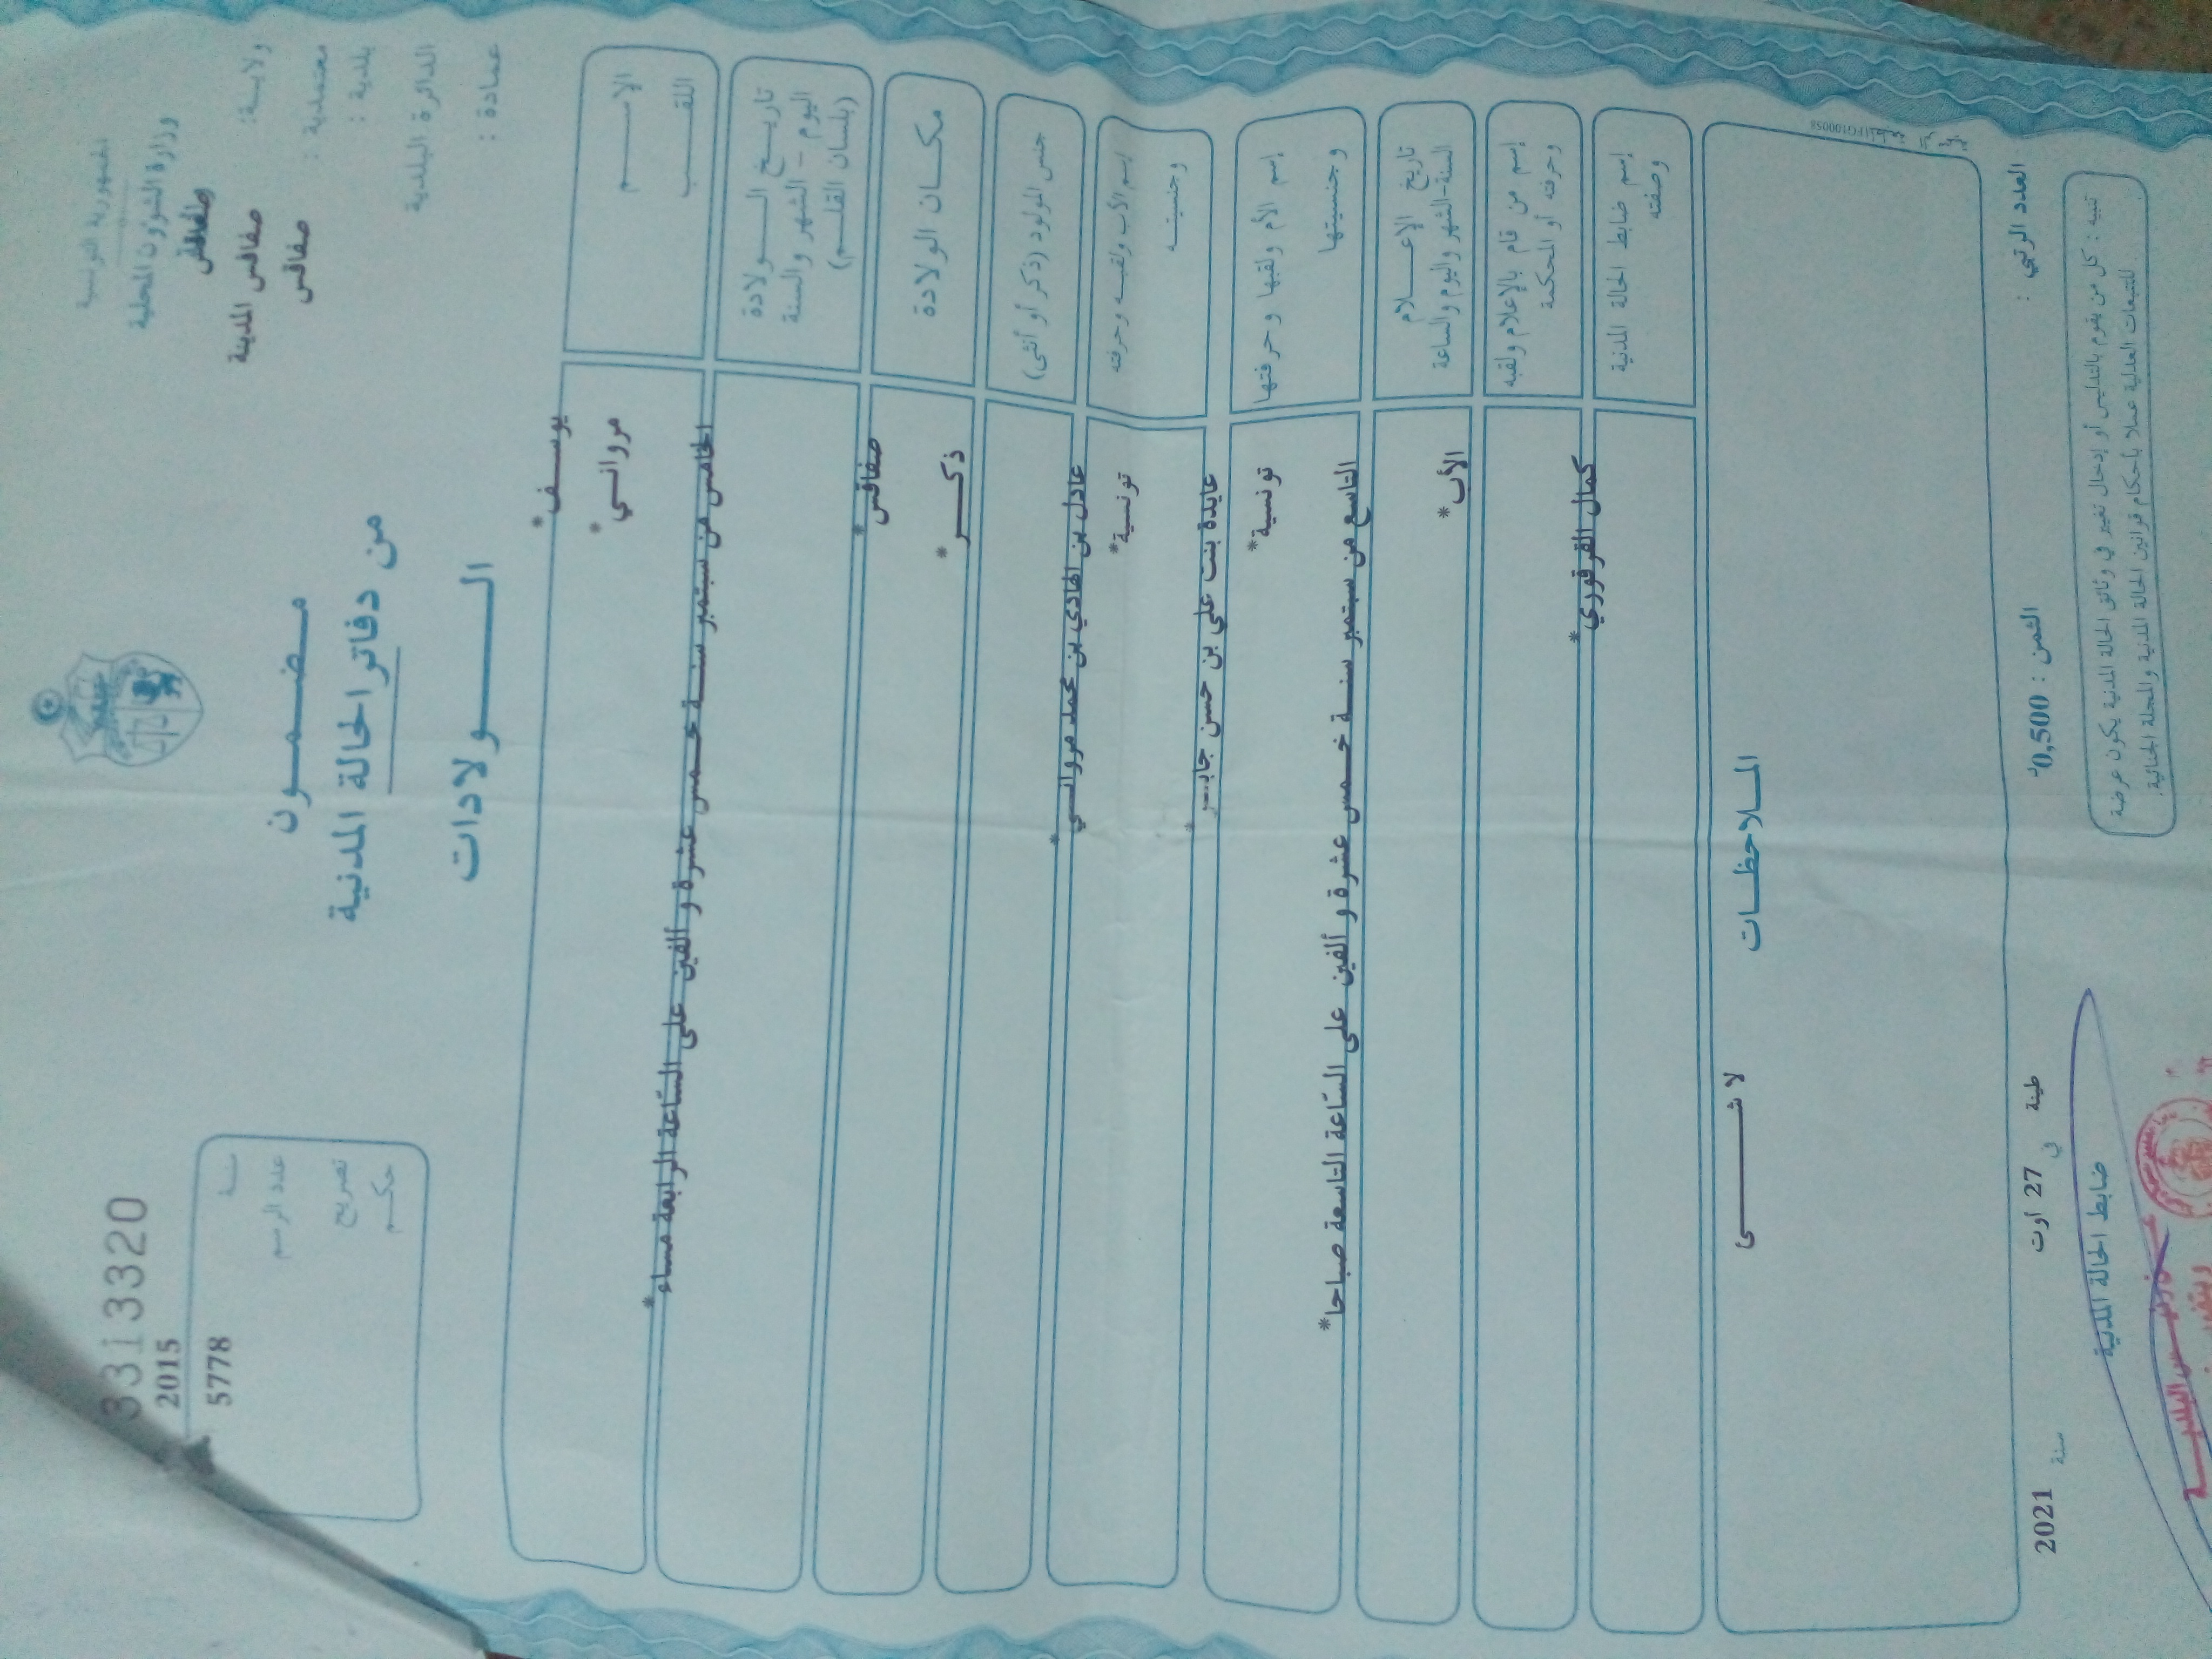 الجمهورية التونسية
وزارة الشؤون المحلية
ولاية: صفاقس
معتمدية : صفاقس المدينة
بلدية : صفاقس
الدائرة البلدية
عمادة :
مضمون
من دفاتر الحالة المدنية
الولادات
3313320
سنة 2015
عدد الرسم 5778
تصريح
حكم
الإسم يوسف*
اللقب مرواني*
تاريخ الولادة
اليوم - الشهر والسنة
(بلسان القلم)
الخامس من سبتمبر سنة خمس عشرة و ألفين على السّاعة الرابعة مساء*
مكان الولادة صفاقس*
جنس المولود (ذكر أو أنثى) ذكر*
إسم الأب ولقبه وحرفته عادل بن الهادي بن محمد مرواني*
وجنسيته تونسية*
إسم الأم ولقبها وحرفتها عايدة بنت علي بن حسن جابر*
وجنسيتها تونسية*
تاريخ الإعلام
السنة-الشهر واليوم والساعة
التاسع من سبتمبر سنة خمس عشرة و ألفين على السّاعة التاسعة صباحا*
إسم من قام بالإعلام ولقبه
وحرفته أو المحكمة
الأب*
إسم ضابط الحالة المدنية
وصفته
كمال القرقوري*
الملاحظات
لا شئ
العدد الرتبي :
الثمن : 0,500د
طينة في 27 أوت سنة 2021
تنبيه : كل من يقوم بالتدليس أو إدخال تغيير في وثائق الحالة المدنية يكون عرضة
للتتبعات العدلية عملا بأحكام قوانين الحالة المدنية والمجلة الجنائية.
ضابط الحالة المدنية